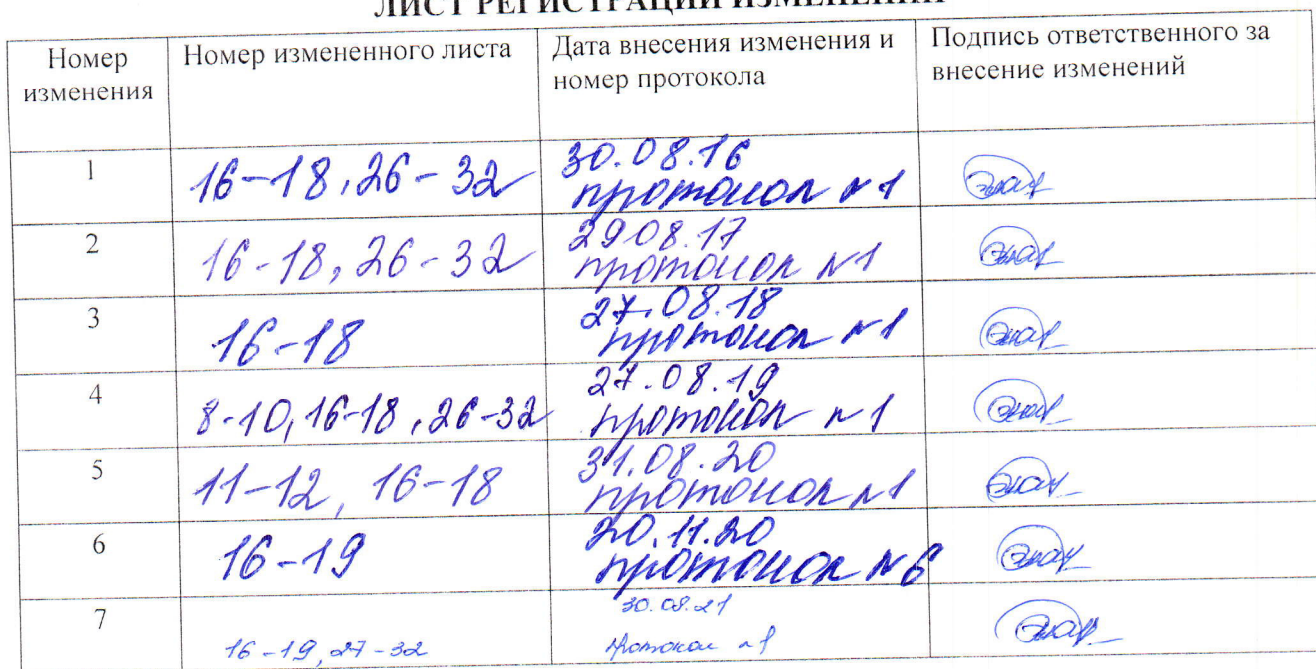 ЛИСТ РЕГИСТРАЦИИ ИЗМЕНЕНИЙ
Номер изменения
Номер измененного листа
Дата внесения изменения и номер протокола
Подпись ответственного за внесение изменений
1
16-18, 26-32
30.08.16
протокол №1
2
16-18, 26-32
29.08.17
протокол №1
3
16-18
27.08.18
протокол №1
4
8-10, 16-18, 26-32
27.08.19
протокол №1
5
11-12, 16-18
31.08.20
протокол №1
6
16-19
20.11.20
протокол №6
7
16-19, 27-32
30.08.21
Протокол №1